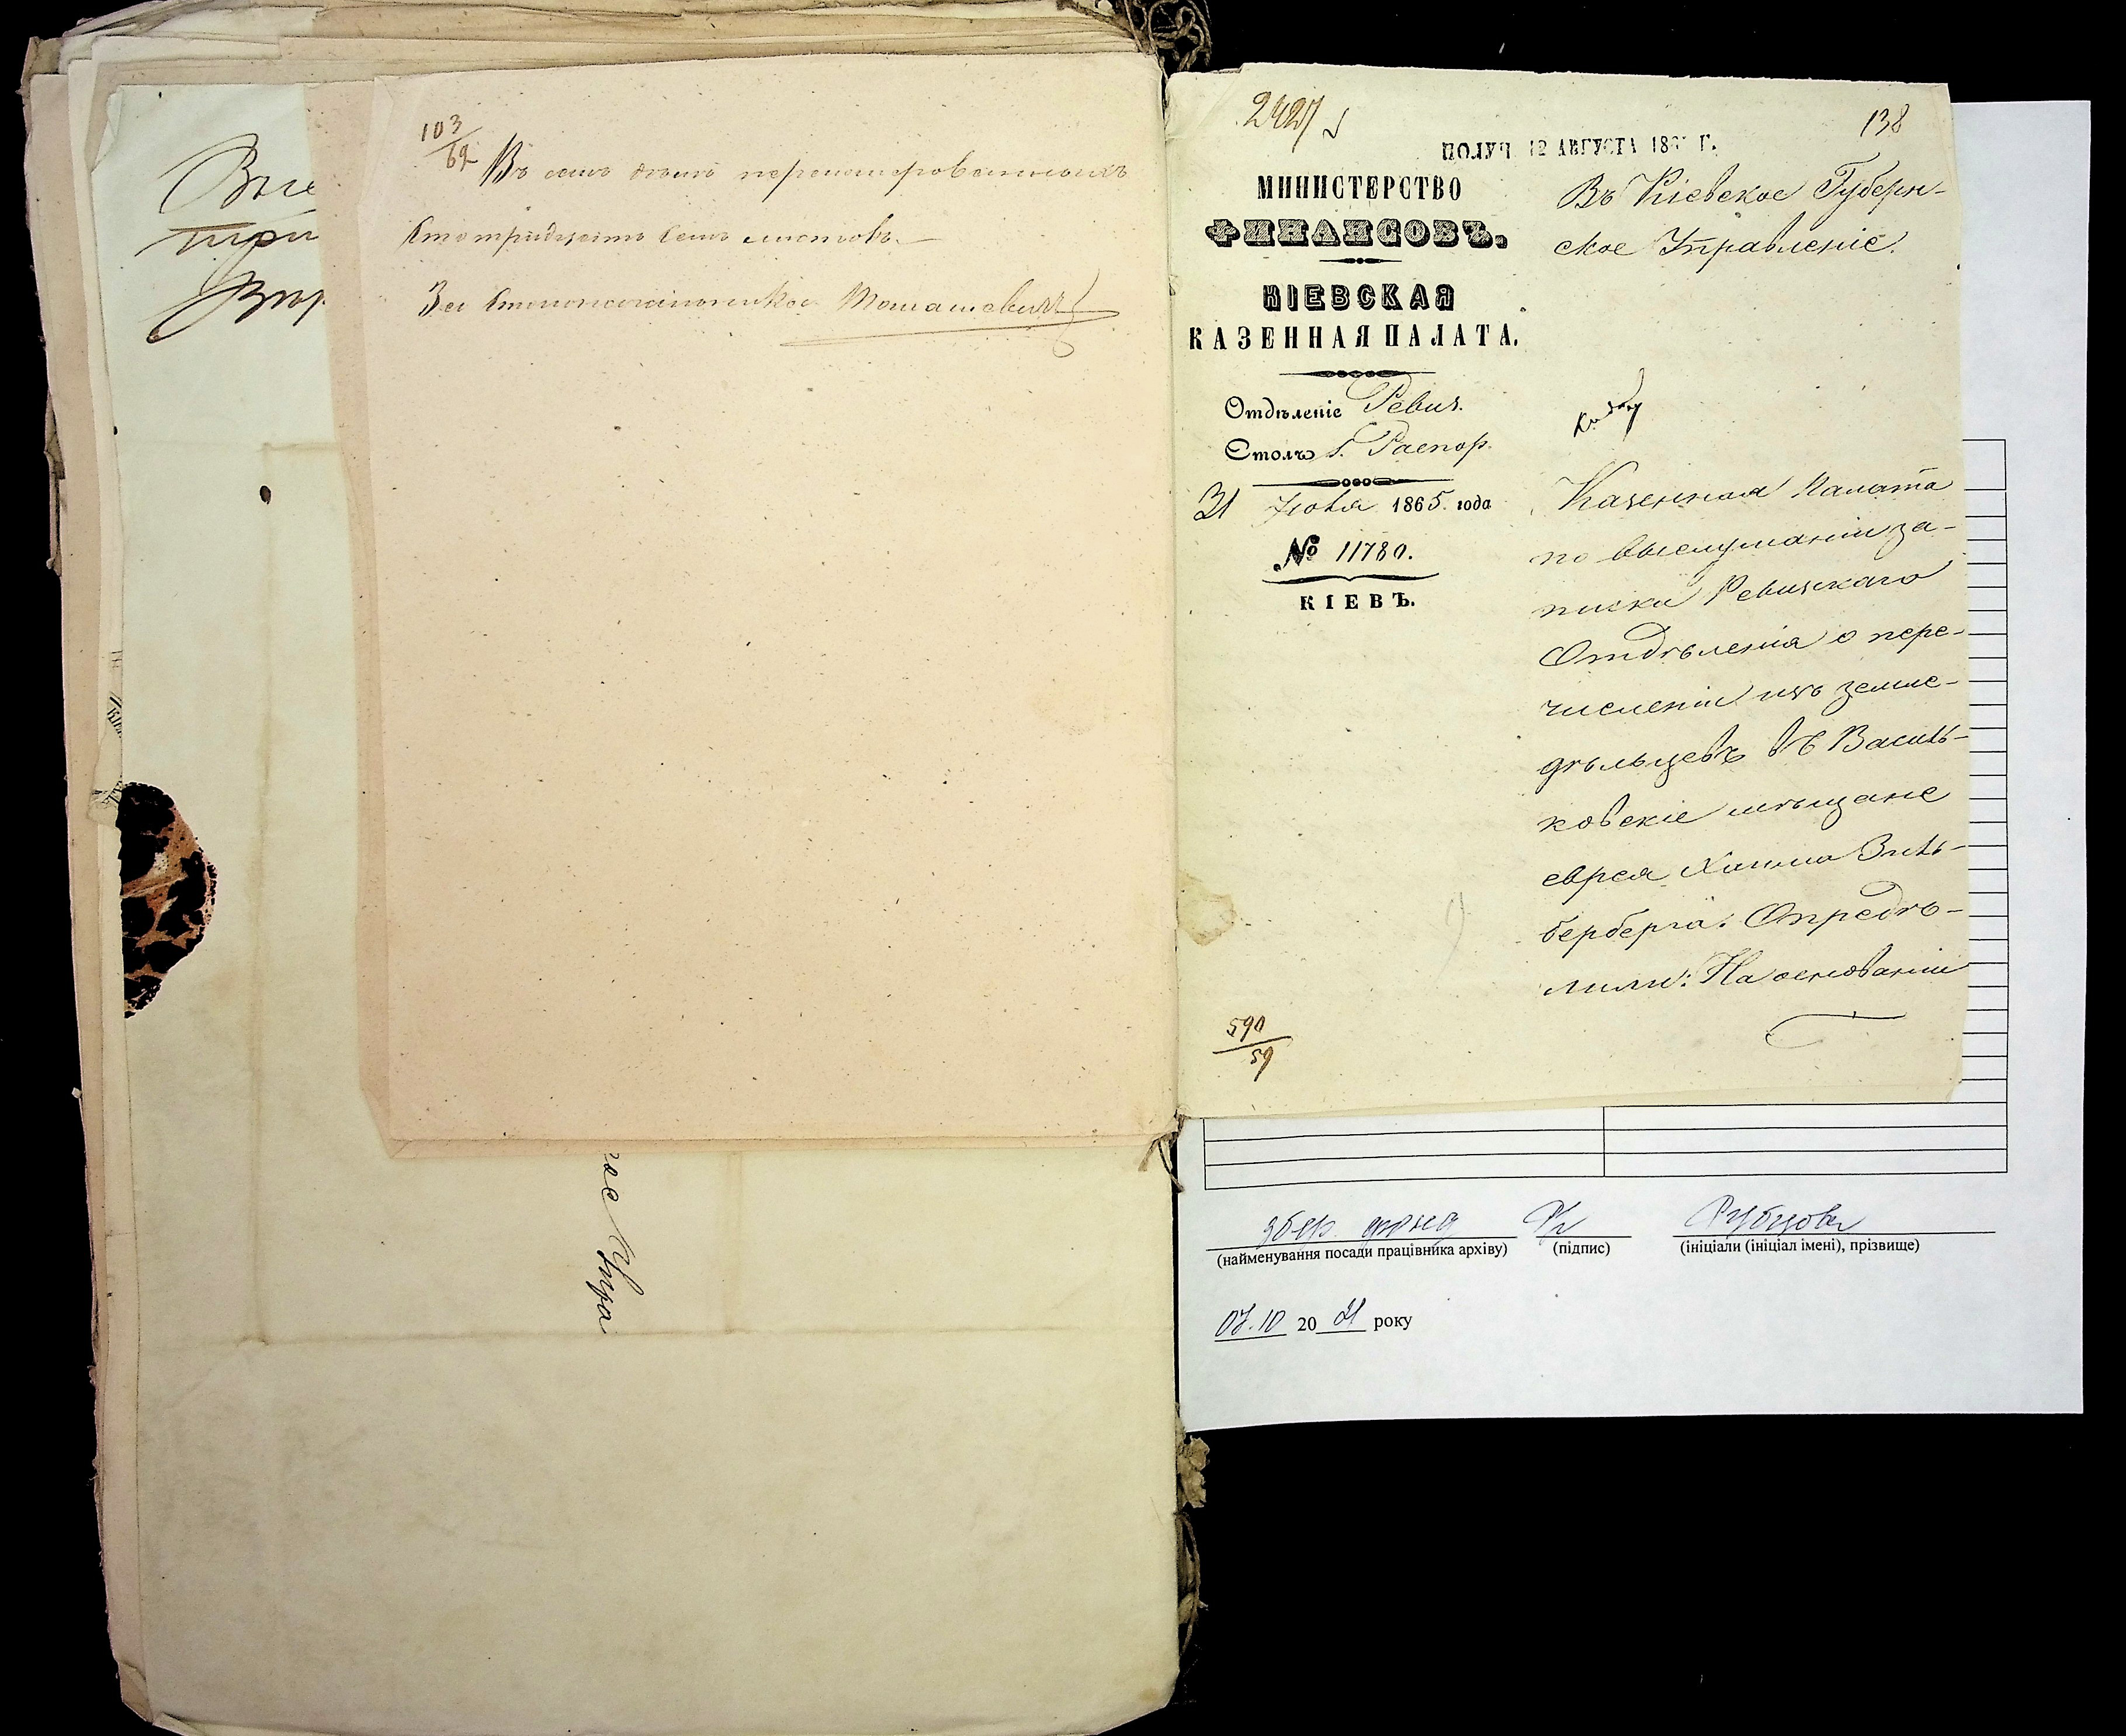 Выс
три
Втор
103/62
Въ семъ дѣлѣ перенумерованныхъ
сто тридцать семь листовъ.
За Столоначальника Томашевичъ
ное Упра
2427
138
ПОЛУЧ 12 АВГУСТА 186 Г.
МИНИСТЕРСТВО
ФИНАНСОВЪ.
КІЕВСКАЯ
КАЗЕННАЯ ПАЛАТА.
Отдѣленіе Ревиз.
Столъ 1. Распор.
31 Іюля 1865. года
№ 11780.
КІЕВЪ.
Въ Кіевское Губерн-
ское Управленіе.
Казенная Палата
по выслушаніи за-
писки Ревизскаго
Отдѣленія о пере-
численіи изъ земле-
дѣльцевъ въ Василь-
ковскіе мѣщане
еврея Хаима Зиль-
берберга. Опредѣ-
лили: На основаніи
590/59
збер. фонд
Рубцова
(найменування посади працівника архіву) (підпис) (ініціали (ініціал імені), прізвище)
07.10 2021 року